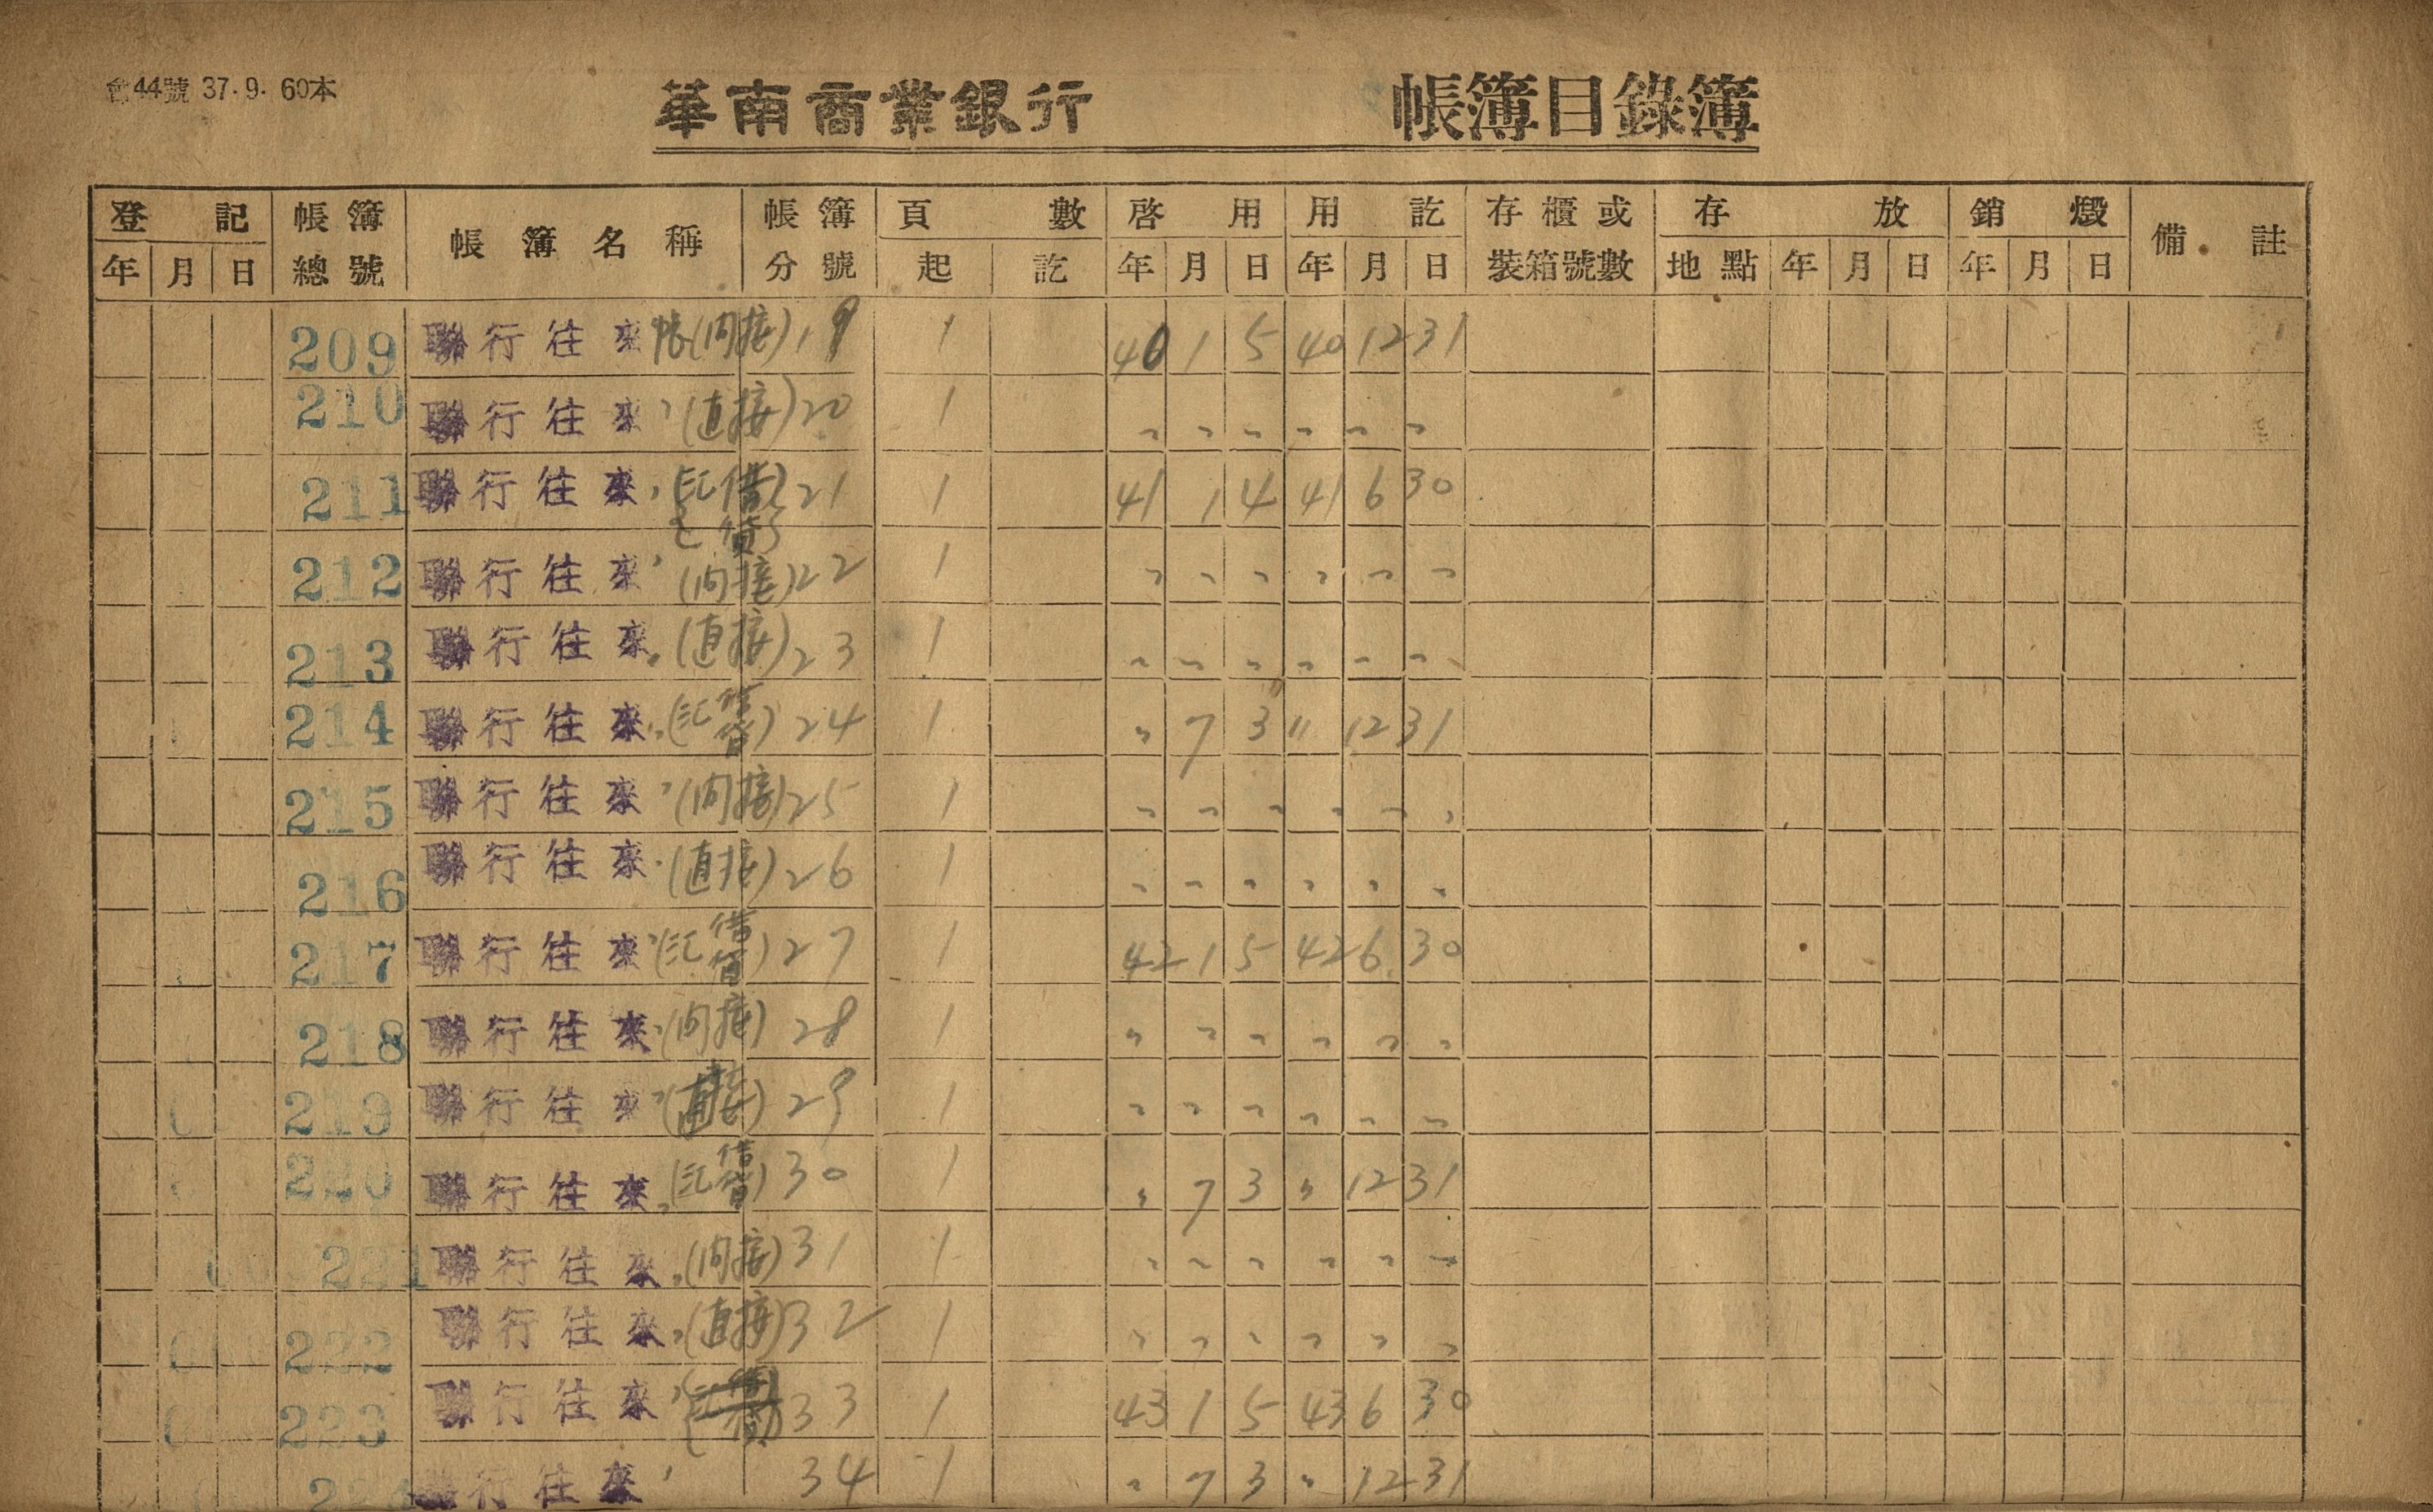 44號 37.9. 60本
華南商業銀行 帳簿目錄簿
登記 帳簿 帳簿名稱 帳簿 頁數 啓用 用訖 存櫃或 存放 銷燬 備註
年 月 日 總號 分號 起 訖 年 月 日 年 月 日 裝箱號數 地點 年 月 日 年 月 日
209 聯行往來帳(间接) 19 1 40 1 5 40 12 31
210 聯行往來〃(直接) 20 1 〃 〃 〃 〃 〃 〃
211 聯行往來〃(汇借貸) 21 1 41 1 4 41 6 30
212 聯行往來〃(间接) 22 1 〃 〃 〃 〃 〃 〃
213 聯行往來〃(直接) 23 1 〃 〃 〃 〃 〃 〃
214 聯行往來〃(汇借貸) 24 1 〃 7 3 〃 12 31
215 聯行往來〃(间接) 25 1 〃 〃 〃 〃 〃 〃
216 聯行往來〃(直接) 26 1 〃 〃 〃 〃 〃 〃
217 聯行往來〃(汇借貸) 27 1 42 1 5 42 6 30
218 聯行往來〃(间接) 28 1 〃 〃 〃 〃 〃 〃
219 聯行往來〃(直接) 29 1 〃 〃 〃 〃 〃 〃
220 聯行往來〃(汇借貸) 30 1 〃 7 3 〃 12 31
221 聯行往來〃(间接) 31 1 〃 〃 〃 〃 〃 〃
222 聯行往來〃(直接) 32 1 〃 〃 〃 〃 〃 〃
223 聯行往來〃 33 1 43 1 5 43 6 30
224 聯行往來〃 34 1 〃 7 3 〃 12 31